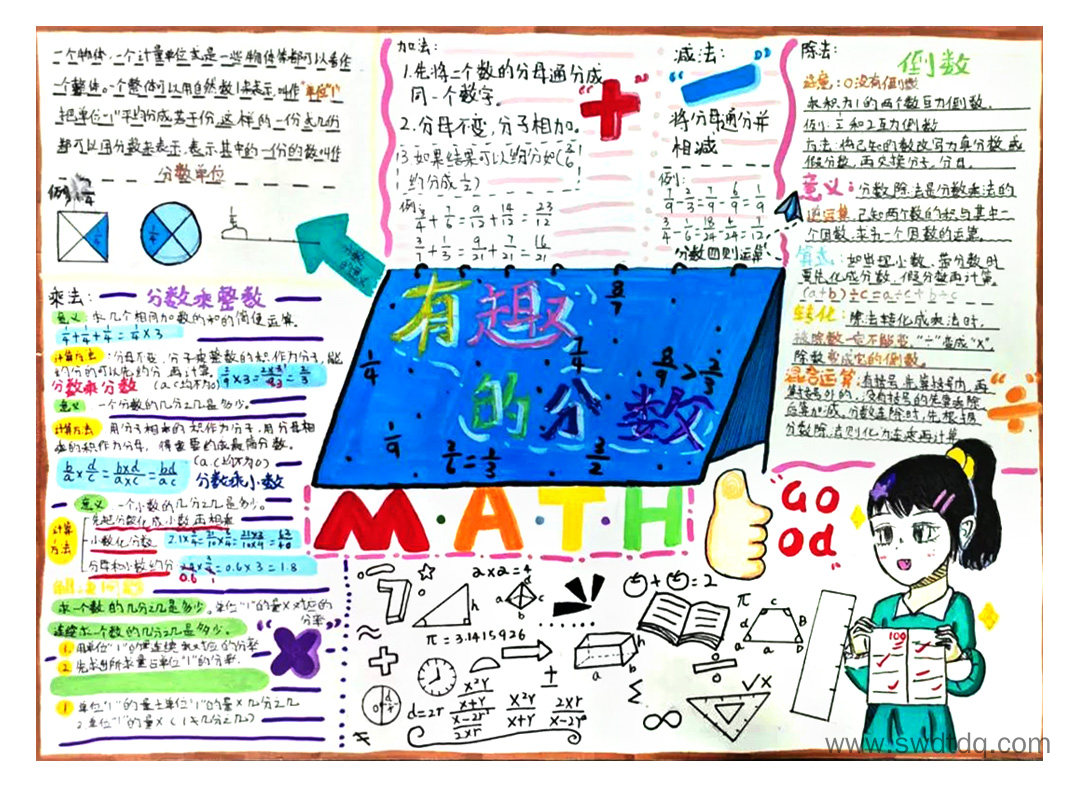 一个物体、一个计量单位或是一些物体等都可以看作
一个整体。一个整体可以用自然数1来表示,叫作"单位"1"
把单位"1"平均分成若干份,这样的一份或几份
都可以用分数来表示,表示其中的一份的数叫作
分数单位
例:
1/4
加法:
1.先将二个数的分母通分成
同一个数字。
2.分母不变,分子相加。
3.如果结果可以约分如(3/6
约分成1/2)
例:
3/4+7/6=9/12+14/12=23/12
3/7+1/3=9/21+7/21=16/21
减法:
将分母通分并
相减
例:
7/9-2/3=7/9-6/9=1/9
3/4-1/6=18/24-4/24=7/12
分数四则运算
除法:
倒数
注意:0没有倒数
乘积为1的两个数互为倒数.
例:1/2和2互为倒数
方法:将已知的数改写为真分数或
假分数,再交换分子,分母.
意义:分数除法是分数乘法的
逆运算,已知两个数的积与其中一
个因数,求另一个因数的运算。
算式:如出现小数、带分数时
要先化成分数、假分数再计算。
(a+b)÷c=a÷c+b÷c
转化:除法转化成乘法时,
被除数一定不能变,"÷"变成"×",
除数变成它的倒数。
混合运算:有括号,先算括号内,再
算括号外的,没有括号的先乘或除
后算加减,分数连除时,先根据
分数除法则化为连乘再计算
乘法:
分数乘整数
意义:求几个相同加数的和的简便运算。
1/4+1/4+1/4=1/4×3
计算方法:分母不变,分子乘整数的积作为分子,能
约分的可以先约分,再计算。2/9×3=2/3
分数乘分数(a、c均不为0)
意义:一个分数的几分之几是多少。
计算方法:用分子相乘的积作为分子,用分母相
乘的积作为分母,得重要约成最简分数。
b/a×d/c=b×d/a×c=bd/ac
(a、c均不为0)
分数乘小数
意义:一个小数的几分之几是多少。
计算方法
先把分数化成小数再相乘
小数化分数。2.1×3/4=21/10×3/4=21×3/10×4=63/40
分母和小数约分
=0.6×3=1.8
求一个数的几分之几是多少。单位"1"的量×对应的
分率
连续求一个数的几分之几是多少。
1.用单位"1"的量连续乘对应的分率
2.先求出所求量占单位"1"的分率.
1 单位"1"的量±单位"1"的量×几分之几
2 单位"1"的量×(1±几分之几)
有趣
的分数
8/7
1/4
7/4
8/9>2/3
1/9
2/6=1/3
3/2
MATH
GO
Od
2×2=4
π=3.1415926
d=2r
+=2
√x
100
www.swdtdq.com